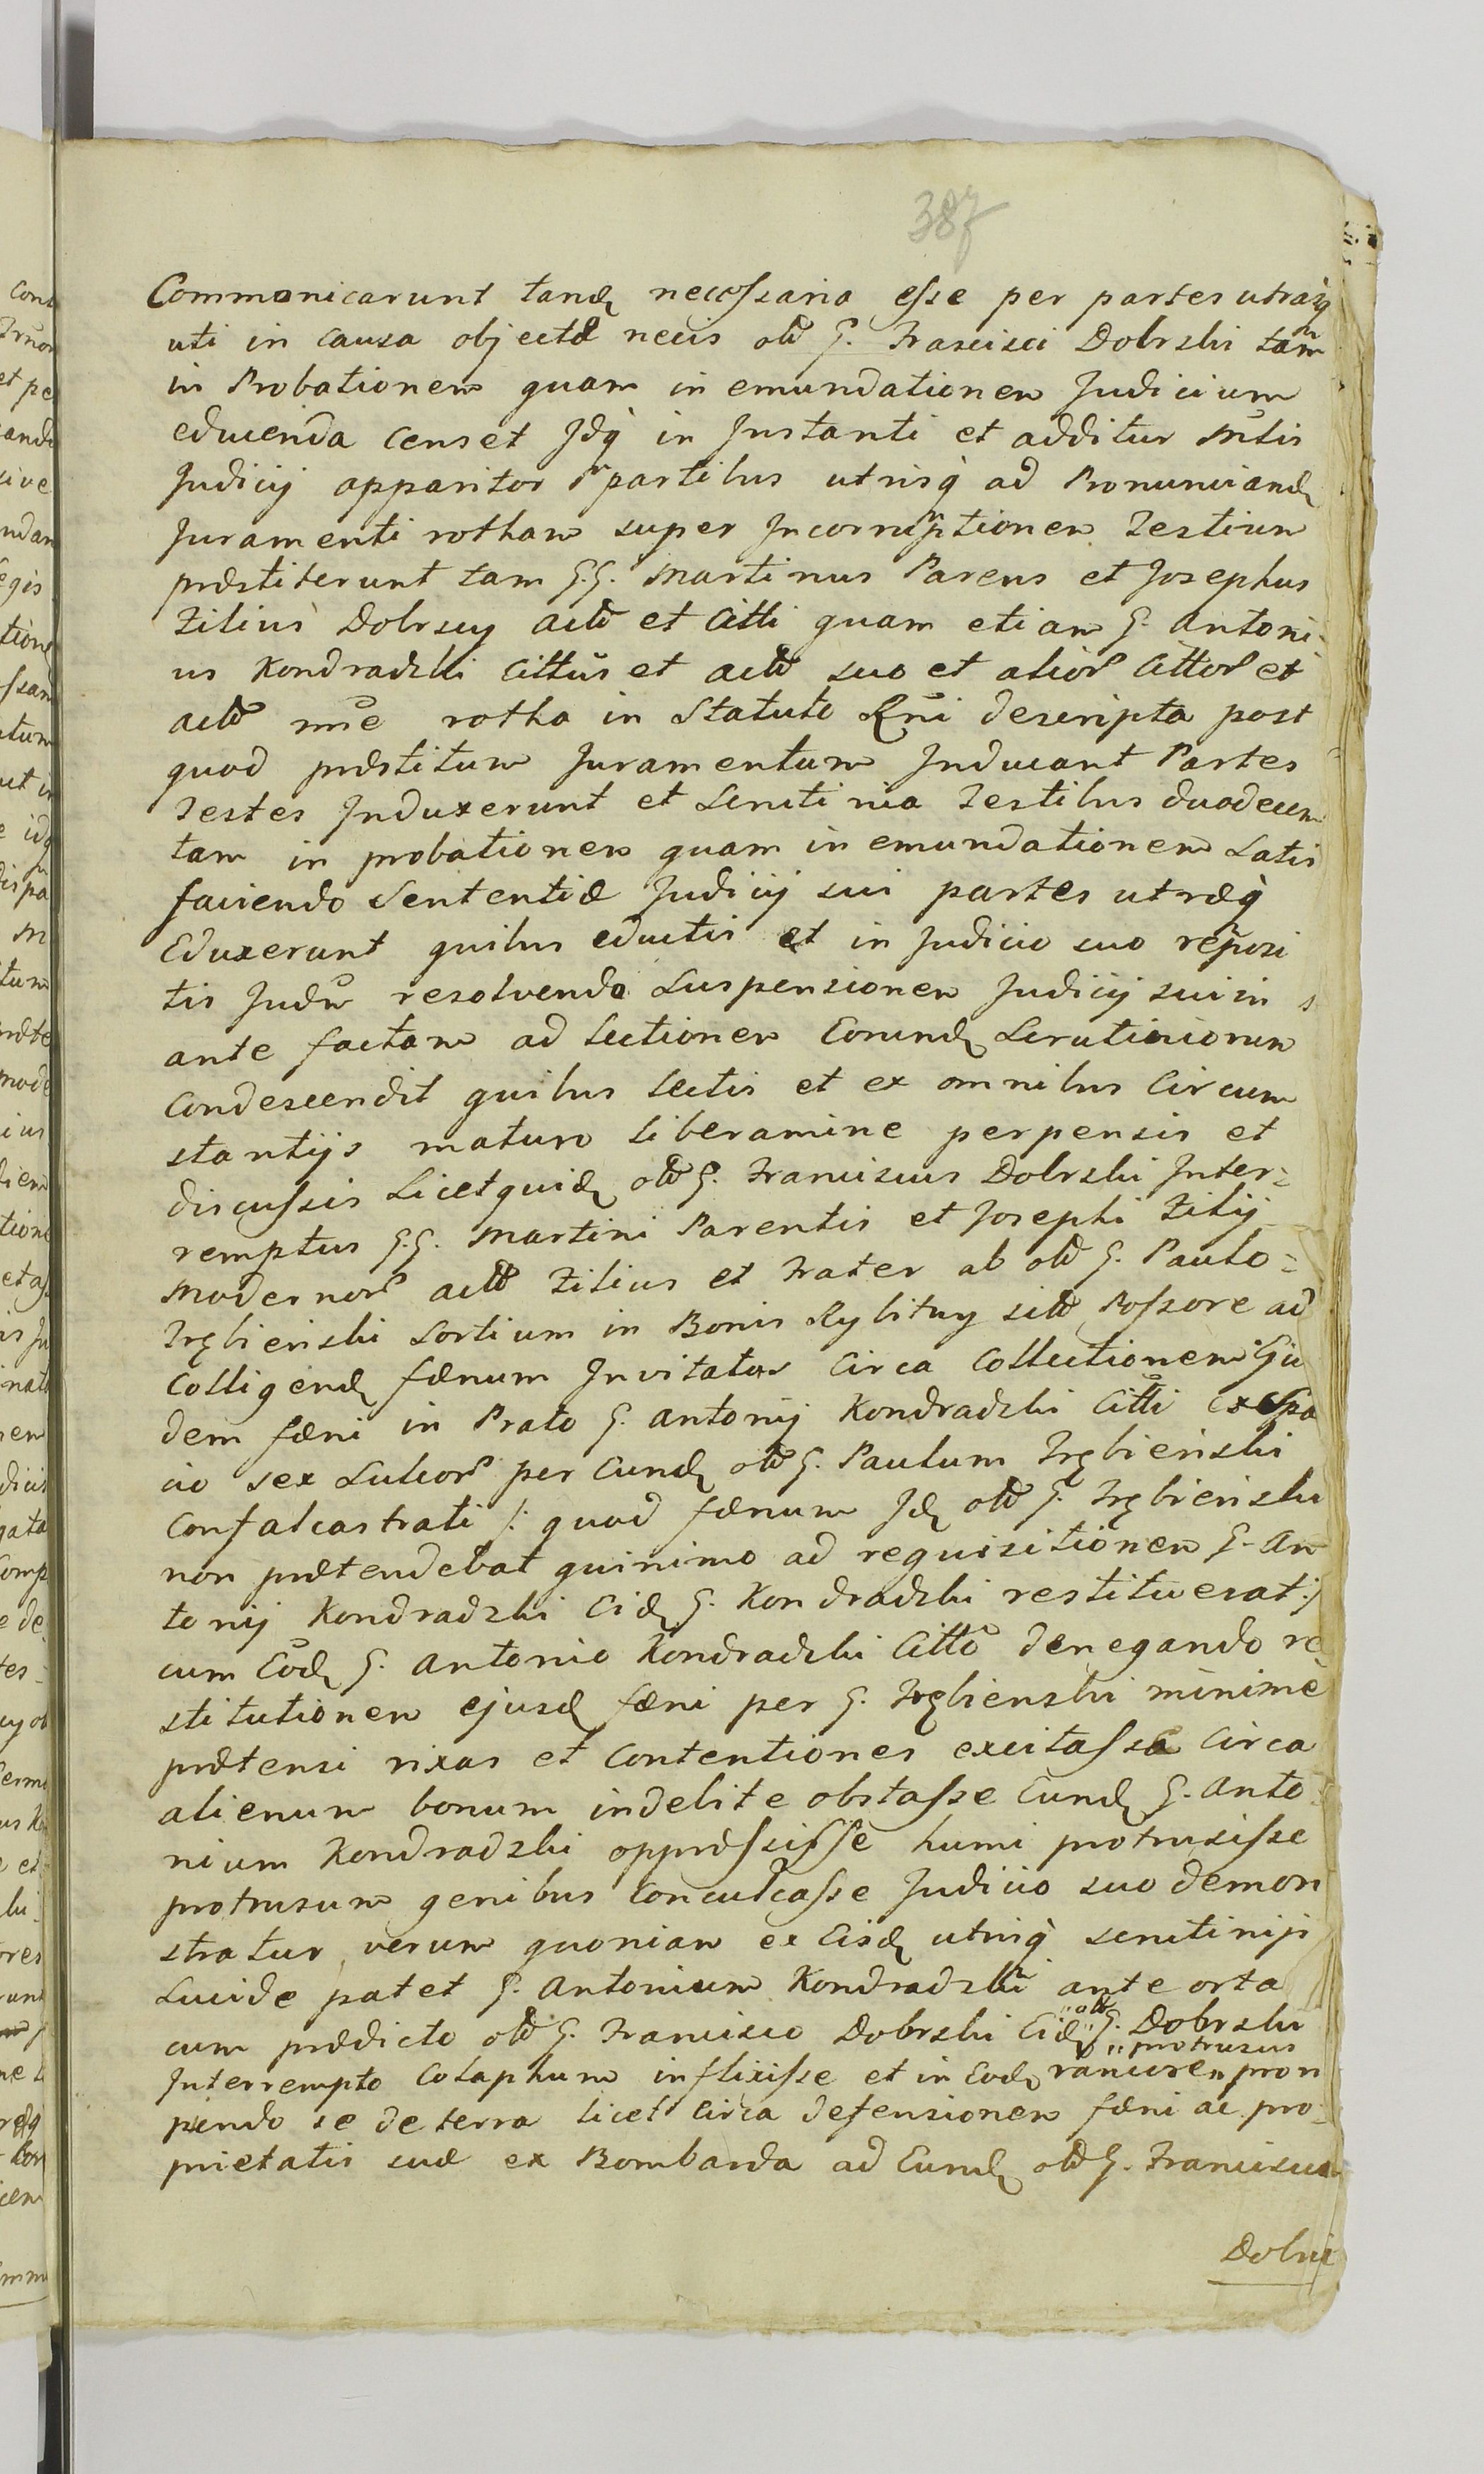 387
Communicarunt tand necessaria esse per partes utrasq
uti in causa objectæ necis olim G. Francisci Dobrski tam
in Probationem quam in emundationem Judicium
educenda censet Jdq in Instanti et additur Mtis
Judicij apparitor partibus utrisq ad Pronunciand
Juramenti rotham super Incorruptionem Testium
præstiterunt tam G.G. Martinus Parens et Josephus
Filius Dobrscy actt et Citti quam etiam G. Antoni-
us Kondradzki Cittus et actt suo et alior Cittor et
actt nne rotha in Statuto Rni descripta post
quod præstitum Juramentum Inducant Partes
Testes Induxerunt et Scrutinia Testibus duodecim
tam in probationem quam in emundationem Satis
faciendo Sententiæ Judicij sui partes utræq
Eduxerunt quibus eductis et in Judicio suo reposi
tis Judm resolvendo Suspensionem Judicij sui in
ante factam ad lectionem Eorund Scrutiniorum
Condescendit quibus lectis et ex omnibus Circum
stantijs maturo liberamine perpensis et
discussis Licet quid olim G. Franciscus Dobrski Inter-
remptus G.G. Martini Parentis et Josephi Filij
Modernor actt Filius et Frater ab olim G. Paulo-
Trębieński Sortium in Bonis Rybitwy sitt Possore ad
Colligend fænum Invitatus Circa Collectionem Eju
dem fæni in Prato G. Antonij Kondradzki Citti Ex spa
cio sex Sulcor per Eund olim G. Paulum Trębieński
Confalcastrati /: quod fænum Jd olim G. Trębieński
non prætendebat quinimo ad requisitionem G. An
tonij Kondradzki Eid G. Kondradzki restituerat :/
cum Eod G. Antonio Kondradzki Citto denegando re
stitutionem ejusd fæni per G. Trębieński minime
prætensi rixas et Contentiones excitasse Circa
alienum bonum indebite obstasse Eund G. Anto
nium Kondradzki oppressisse humi protrusisse
protrusum genibus Conculcasse Judicio suo demon
stratur, verum quoniam ex Eisd utrisq scrutinijs
Lucide patet G. Antonium Kondradzki ante orta
cum prædicto olim G. Francisco Dobrski Eid olim G. Dobrski
protrusus
Interrempto Colaphum inflixisse et in Eod rancore prori
piendo se de terra licet Circa defensionem fæni ac pro-
prietatis suæ ex Bombarda ad Eund olim G. Franciscum
Dobrski